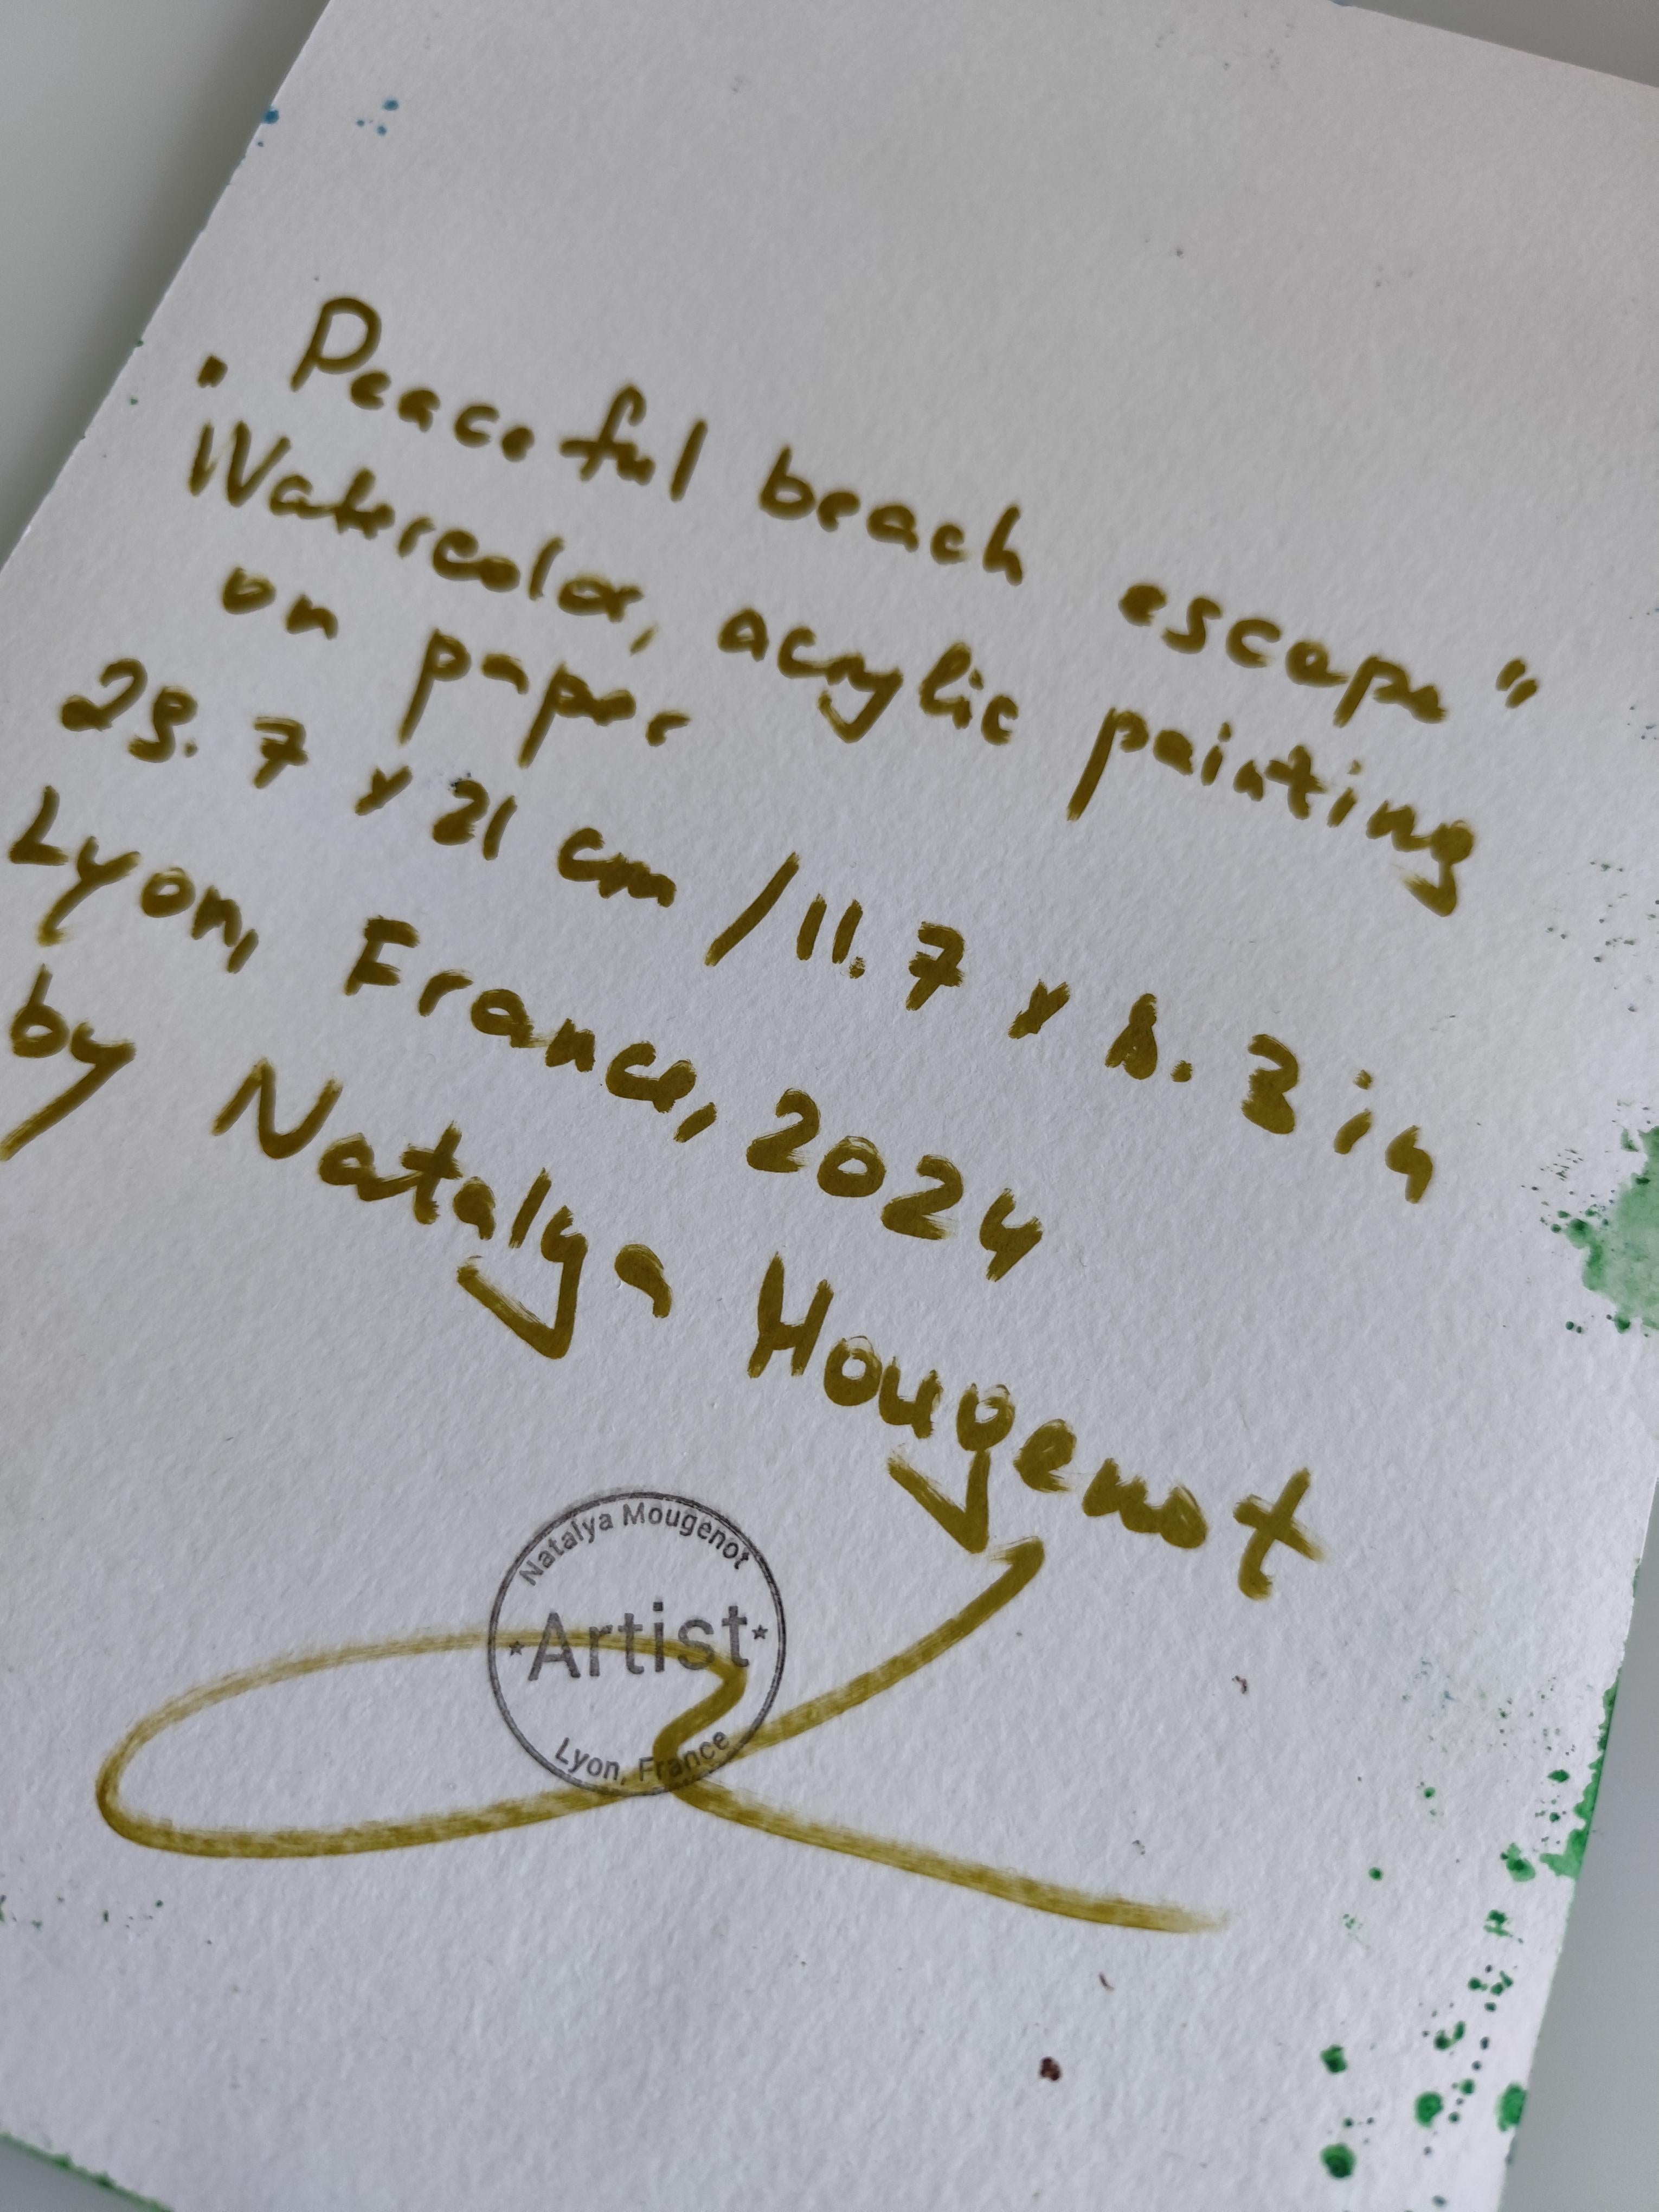 "Peaceful beach escape"
Watercolor, acrylic painting
on paper
29.7 x 21 cm / 11.7 x 8.3 in
Lyon, France, 2024
by Natalya Mougenot
Natalya Mougenot
Artist
Lyon, France